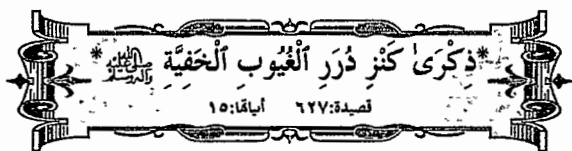 *ذِكْرَىٰ كَنْزِ دُرَرِ الْغُيُوبِ الْخَفِيَّةِ ﷺ*
قصيدة:٦٢٧ أبياتها:١٥